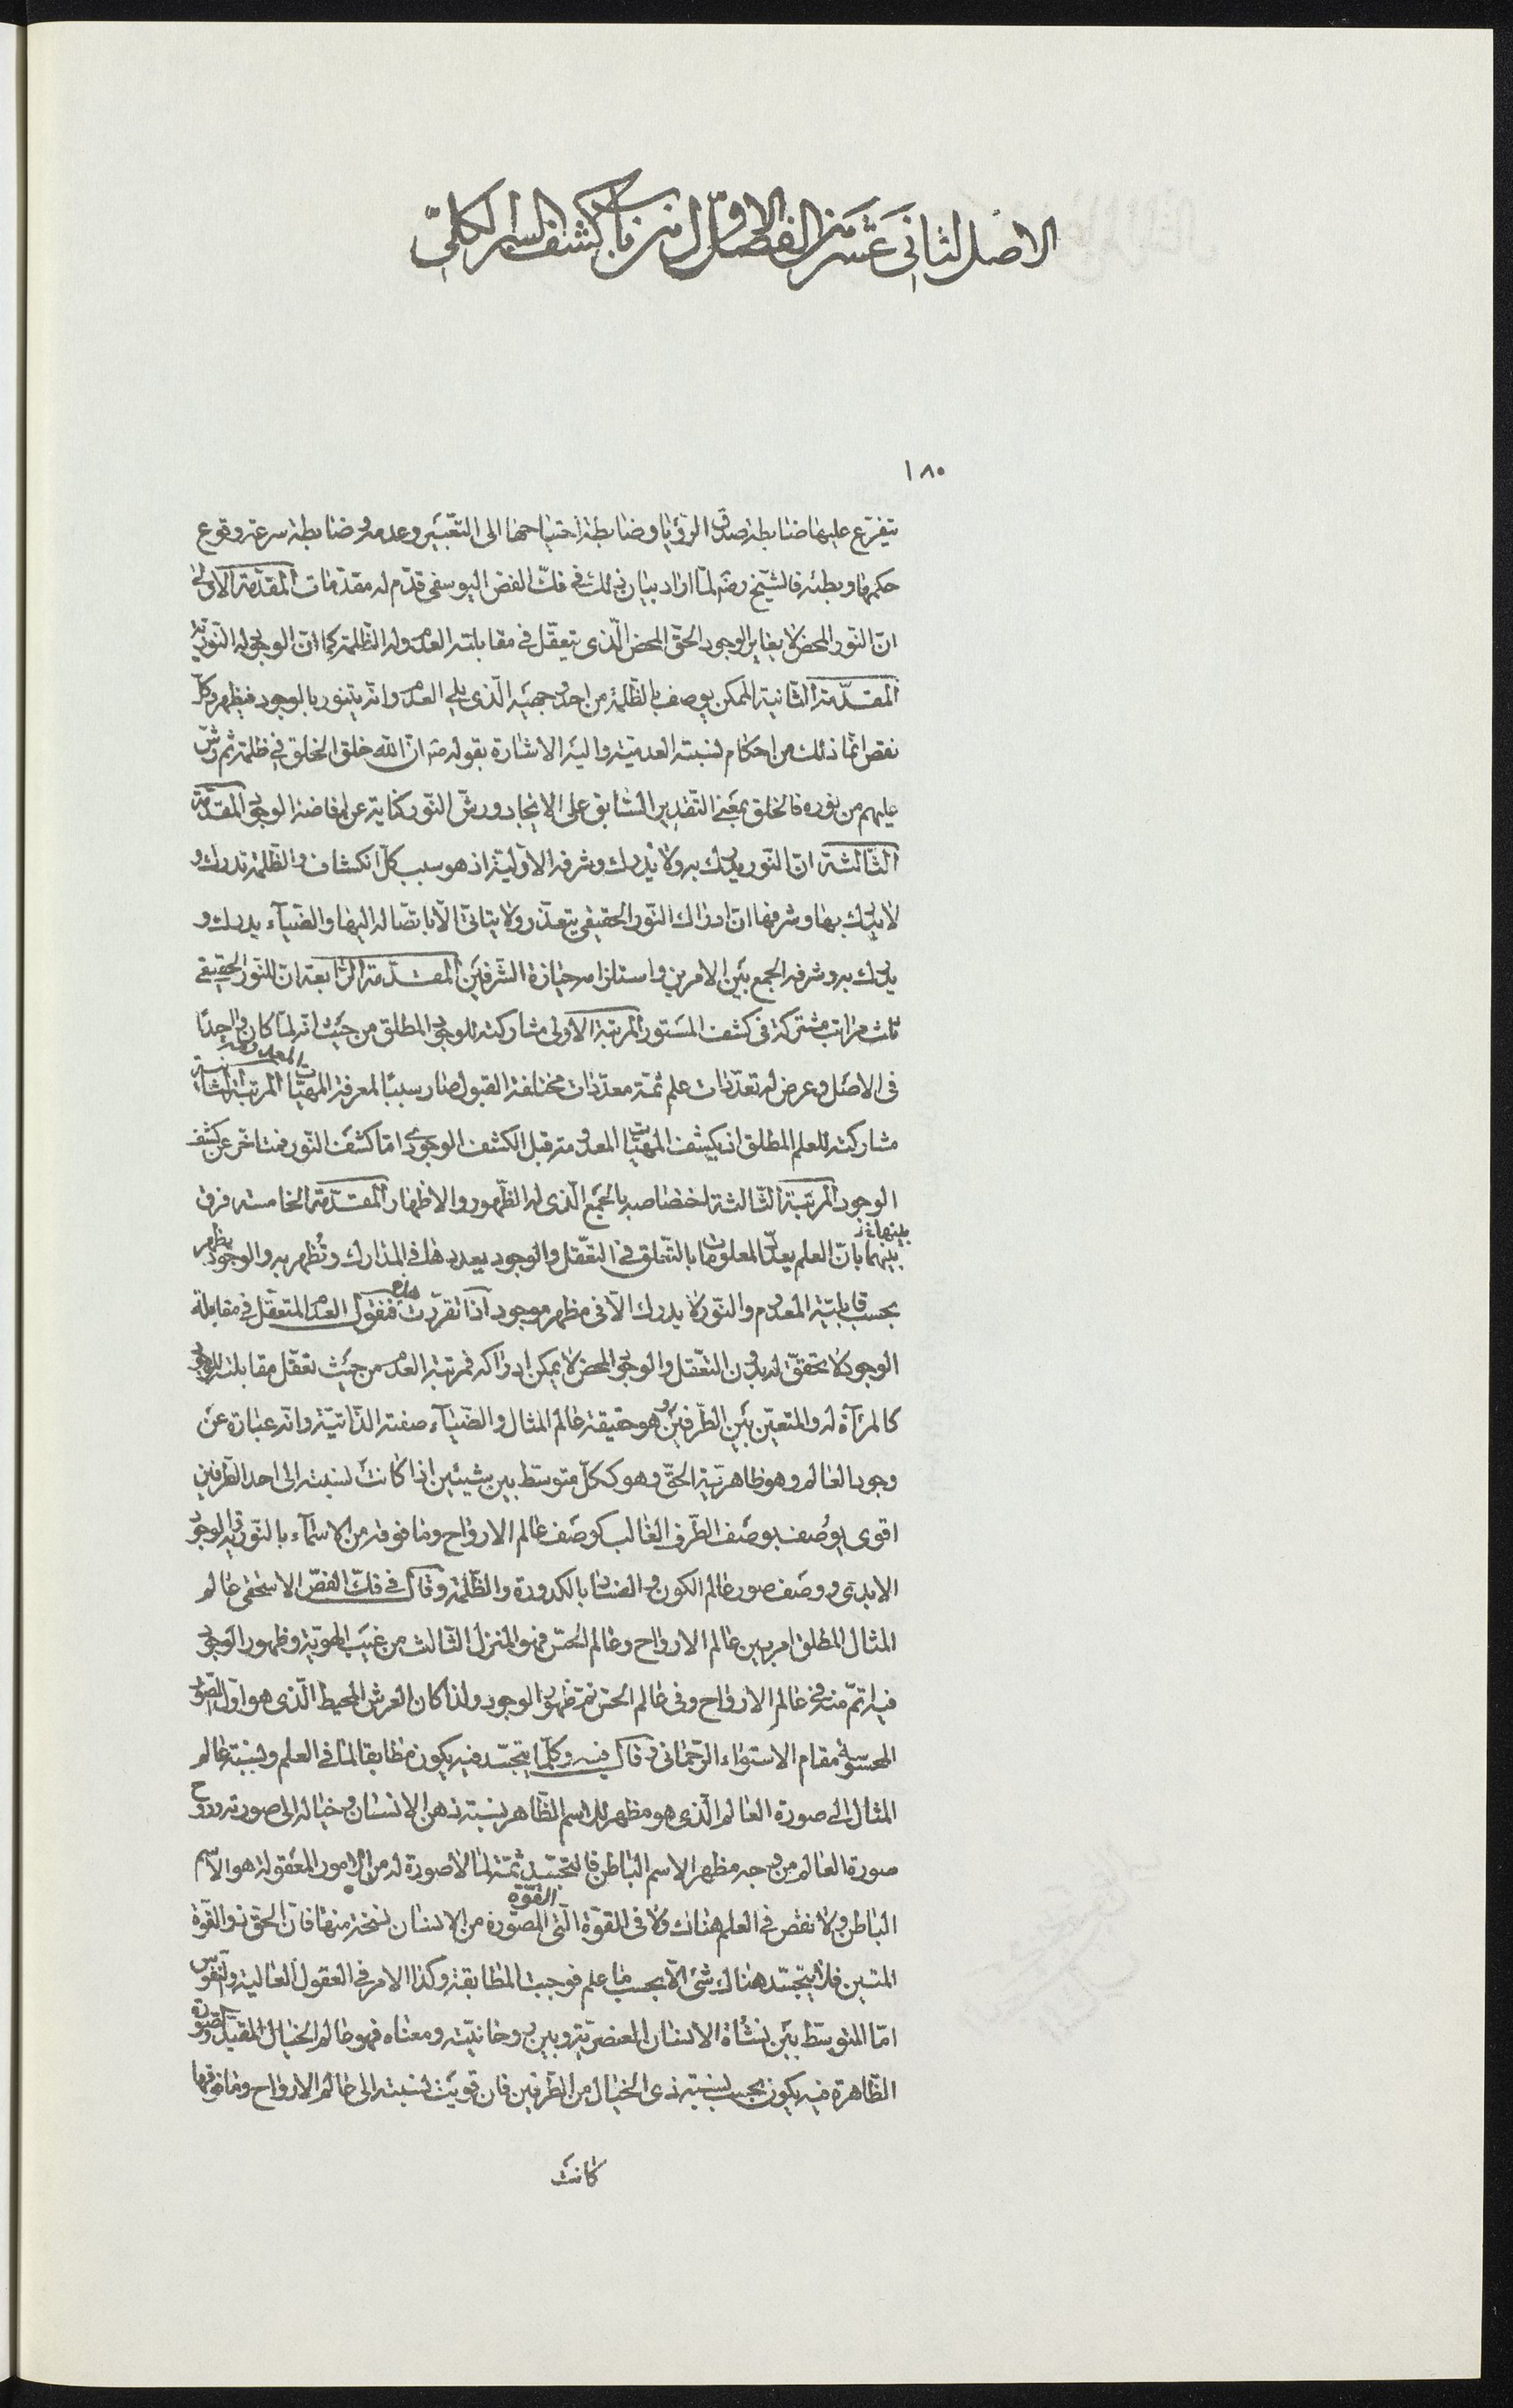 الاصل الثانى عشر من الفصل الاول من باب كشف السر الكلى
١٨٠
يتفرع عليها ضابطة صدق الرؤيا وضابطة احتياجها الى التعبير وعدمه وضابطة سرعة وقوع
حكمها وبطئه فالشيخ رضه لما اراد بيان ذلك فى فك الفص اليوسفى قدم له مقدمات المقدمة الاولى
ان النور المحض لا يغاير الوجود الحق المحض الذى يتعقل فى مقابلته العدم وله الظلمة كما ان الوجود له النورية
المقدمة الثانية الممكن يوصف بالظلمة من احد وجهيه الذى يلى العدم وانه يتنور بالوجود فيظهر وكل
نقص انما ذلك من احكام نسبته العدمية واليه الاشارة بقوله صه ان الله خلق الخلق فى ظلمة ثم رش
عليهم من نوره فالخلق بمعنى التقدير السابق على الايجاد ورش النور كناية عن افاضة الوجود المقدمة
الثالثة ان النور يدرك به ولا يدرك وشرفه الاولية اذ هو سبب كل انكشاف والظلمة تدرك و
لا يدرك بها وشرفها ان ادراك النور الحقيقى يتعذر ولا يتاتى الا باتصاله اليها والضياء يدرك و
يدرك به وشرفه الجمع بين الامرين واستلزامه حيازة الشرفين المقدمة الرابعة ان للنور الحقيقى
ثلث مراتب مشتركة فى كشف المستور المرتبة الاولى مشاركته للوجود المطلق من حيث انه لما كان واحدا
فى الاصل وعرض له تعددات علم ثمة معددات مختلفة القبول صار سببا لمعرفة المهيات المعدومة المرتبة الثانية
مشاركته للعلم المطلق اذ يكشف المهيات المعدومة قبل الكشف الوجودى اما كشف النور فمتاخر عن كشف
الوجود المرتبة الثالثة اختصاصه بالجمع الذى له الظهور والاظهار المقدمة الخامسة فرق
بينهما بان العلم يعدد المعلومات بالتعلق فى التعقل والوجود يعددها فى المدارك وتظهر به والوجود يظهر
بحسب قابلية المعدوم والنور لا يدرك الا فى مظهر موجود اذا تقررت هذه فنقول العدم المتعقل فى مقابلة
الوجود لا تحقق له بدون التعقل والوجود المحض لا يمكن ادراكه فمرتبة العدم من حيث تعقل مقابلته للوجود
كالمرآة له والمتعين بين الطرفين هو حقيقة عالم المثال والضياء صفته الذاتية وانه عبارة عن
وجود العالم وهو ظاهرية الحق وهو ككل متوسط بين شيئين اذا كانت نسبته الى احد الطرفين
اقوى يوصف بوصف الطرف الغالب كوصف عالم الارواح وما فوقه من الاسماء بالنورية والوجود
الابدى ووصف صور عالم الكون والفساد بالكدورة والظلمة وقال فى فك الفص الاسحقى عالم
المثال المطلق امر بين عالم الارواح وعالم الحس فهو المنزل الثالث من غيب الهوية وظهور الوجود
فيه اتم منه فى عالم الارواح وفى عالم الحس تم ظهور الوجود ولذا كان العرش المحيط الذى هو اول الصور
المحسوسة مقام الاستواء الرحمانى وقال فيه وكلما يتجسد فيه يكون مطابقا لما فى العلم ونسبة عالم
المثال الى صورة العالم الذى هو مظهر للاسم الظاهر نسبة ذهن الانسان وخياله الى صورته وروح
صورة العالم من وجه مظهر الاسم الباطن فالتجسد ثمة لما لا صورة له من الامور المعقولة هو الاسم
الباطن ولا نقص فى العلم هناك ولا فى القوة التى القوة المصورة من الانسان نسخة منها فان الحق ذو القوة
المتين فلا يتجسد هناك شئ الا بحسب ما علم فوجبت المطابقة وكذا الامر فى العقول العالية والنفوس
اما المتوسط بين نشأة الانسان العنصرية وبين روحانيته ومعناه فهو عالم الخيال المقيد والصورة
الظاهرة فيه يكون بحسب نسبة ذى الخيال من الطرفين فان قويت نسبته الى عالم الارواح وما فوقها
كانت